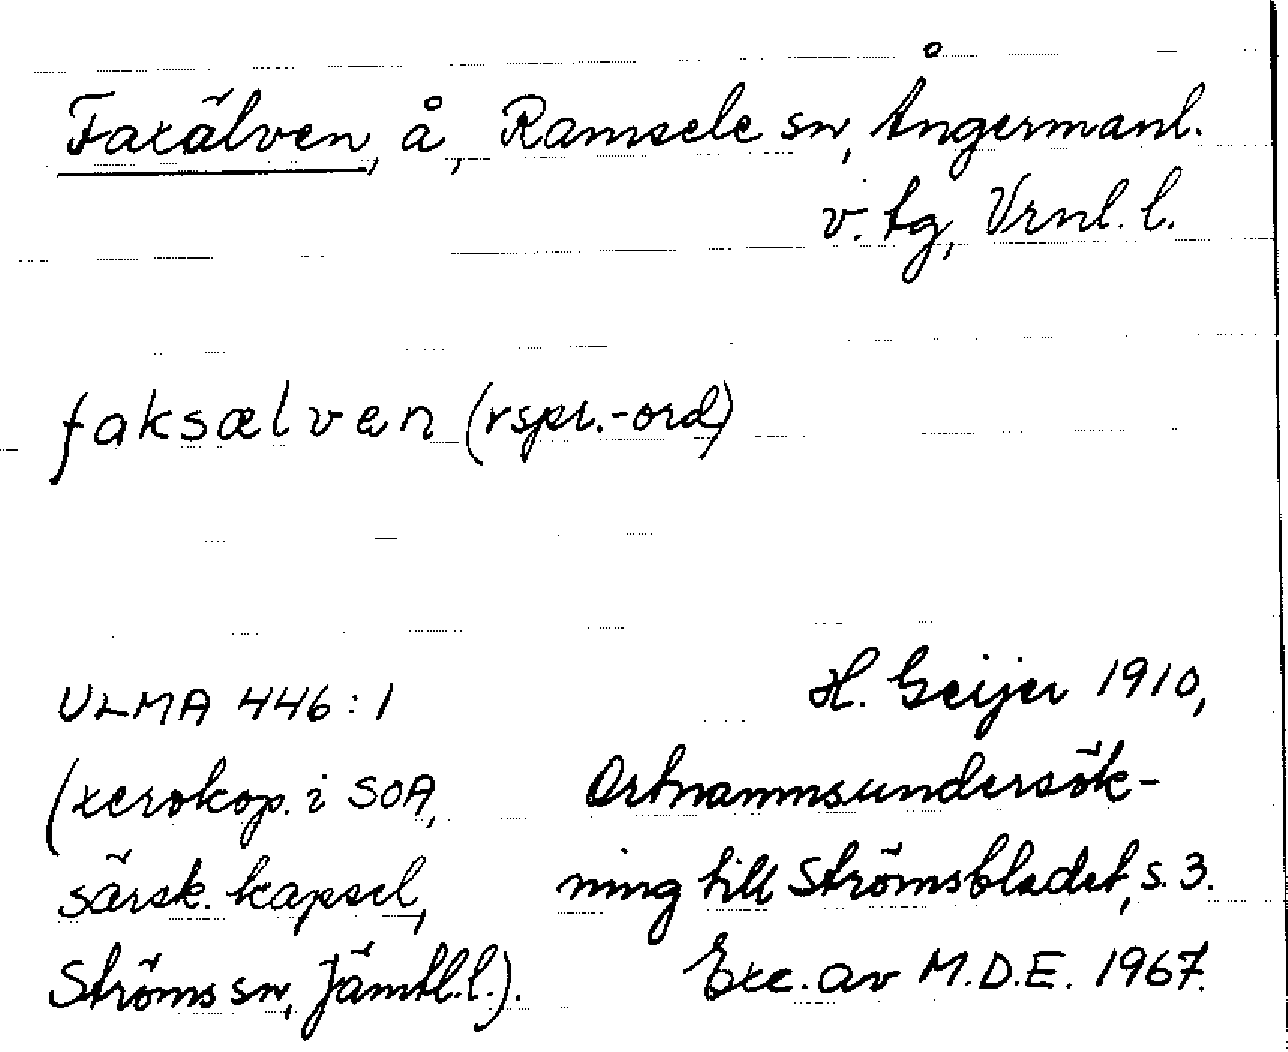 Faxälven, å, Ramsele sn, Ångermanl.
v. tg, Vrnl. l.
faksælven (rspr.-ord)
ULMA 446:1
(xerokop. i SOA,
särsk. kapsel,
Ströms sn, Jämtl.l.).
H. Geijer 1910,
Ortnammsundersök-
ning till Strömsbladet, s. 3.
Exc. av M.D.E. 1967.